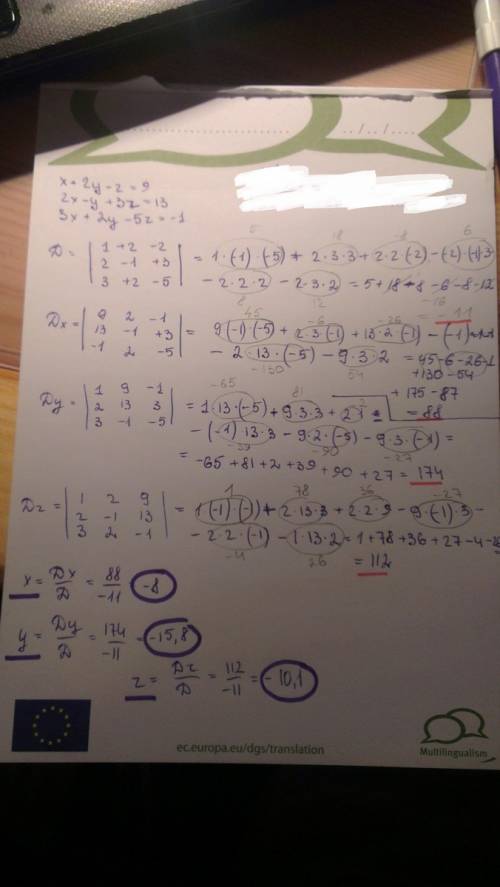 x+2y-z=9
2x-y+3z=13
3x+2y-5z=-1
D = | 1 +2 -2 | 2 -1 +3 | 3 +2 -5 | = 1·(-1)·(-5) + 2·3·3 + 2·2·(-2) - (-2)·(-1)·3
5 18 -8 6
- 2·2·2 - 2·3·2 = 5+18-8-6-8-12
8 12
-16
= -11
Dx = | 9 2 -1 | 13 -1 +3 | -1 2 -5 | = 9(-1)·(-5) + 2·3·(-1) + 13·2·(-1) - (-1)
45 -6 -26
- 2·13·(-5) - 9·3·2 = 45-6-26-1
-130 54
+130-54
+175-87
= 88
Dy = | 1 9 -1 | 2 13 3 | 3 -1 -5 | = 1·13·(-5) + 9·3·3 + 2·1
-65 81 2
- (-1)·13·3 - 9·2·(-5) - 9·3·(-1) =
-39 -90 -27
= -65+81+2+39+90+27 = 174
Dz = | 1 2 9 | 2 -1 13 | 3 2 -1 | = 1(-1)·(-1) + 2·13·3 + 2·2·9 - 9·(-1)·3 -
1 78 36 -27
- 2·2·(-1) - 1·13·2 = 1+78+36+27-4-26
-4 26
= 112
x = Dx/D = 88/-11 = -8
y = Dy/D = 174/-11 = -15,8
z = Dz/D = 112/-11 = -10,1
ec.europa.eu/dgs/translation
Multilingualism